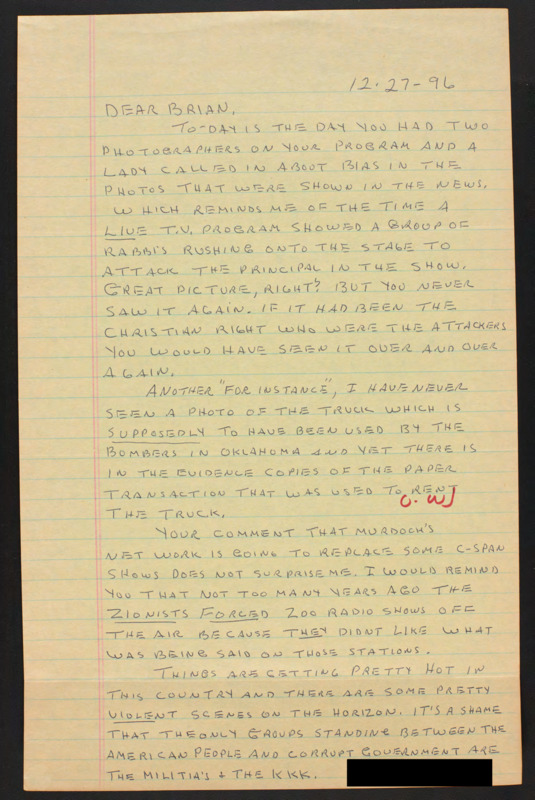 12-27-96
DEAR BRIAN,
TO-DAY IS THE DAY YOU HAD TWO
PHOTOGRAPHERS ON YOUR PROGRAM AND A
LADY CALLED IN ABOUT BIAS IN THE
PHOTOS THAT WERE SHOWN IN THE NEWS.
WHICH REMINDS ME OF THE TIME A
LIVE T.V. PROGRAM SHOWED A GROUP OF
RABBI'S RUSHING ONTO THE STAGE TO
ATTACK THE PRINCIPAL IN THE SHOW.
GREAT PICTURE, RIGHT? BUT YOU NEVER
SAW IT AGAIN. IF IT HAD BEEN THE
CHRISTIAN RIGHT WHO WERE THE ATTACKERS
YOU WOULD HAVE SEEN IT OVER AND OVER
AGAIN.
ANOTHER "FOR INSTANCE", I HAVE NEVER
SEEN A PHOTO OF THE TRUCK WHICH IS
SUPPOSEDLY TO HAVE BEEN USED BY THE
BOMBERS IN OKLAHOMA AND YET THERE IS
IN THE EVIDENCE COPIES OF THE PAPER
TRANSACTION THAT WAS USED TO RENT
THE TRUCK.
YOUR COMMENT THAT MURDOCH'S
NET WORK IS GOING TO REPLACE SOME C-SPAN
SHOWS DOES NOT SURPRISE ME. I WOULD REMIND
YOU THAT NOT TOO MANY YEARS AGO THE
ZIONISTS FORCED 200 RADIO SHOWS OFF
THE AIR BECAUSE THEY DIDNT LIKE WHAT
WAS BEING SAID ON THOSE STATIONS.
THINGS ARE GETTING PRETTY HOT IN
THIS COUNTRY AND THERE ARE SOME PRETTY
VIOLENT SCENES ON THE HORIZON. IT'S A SHAME
THAT THE ONLY GROUPS STANDING BETWEEN THE
AMERICAN PEOPLE AND CORRUPT GOVERNMENT ARE
THE MILITIA'S + THE KKK.